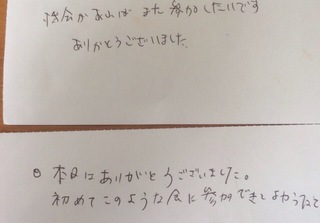 機会があればまた参加したいです
ありがとうございました
◎ 本日はありがとうございました。
初めてこのような会に参加できてよかったで